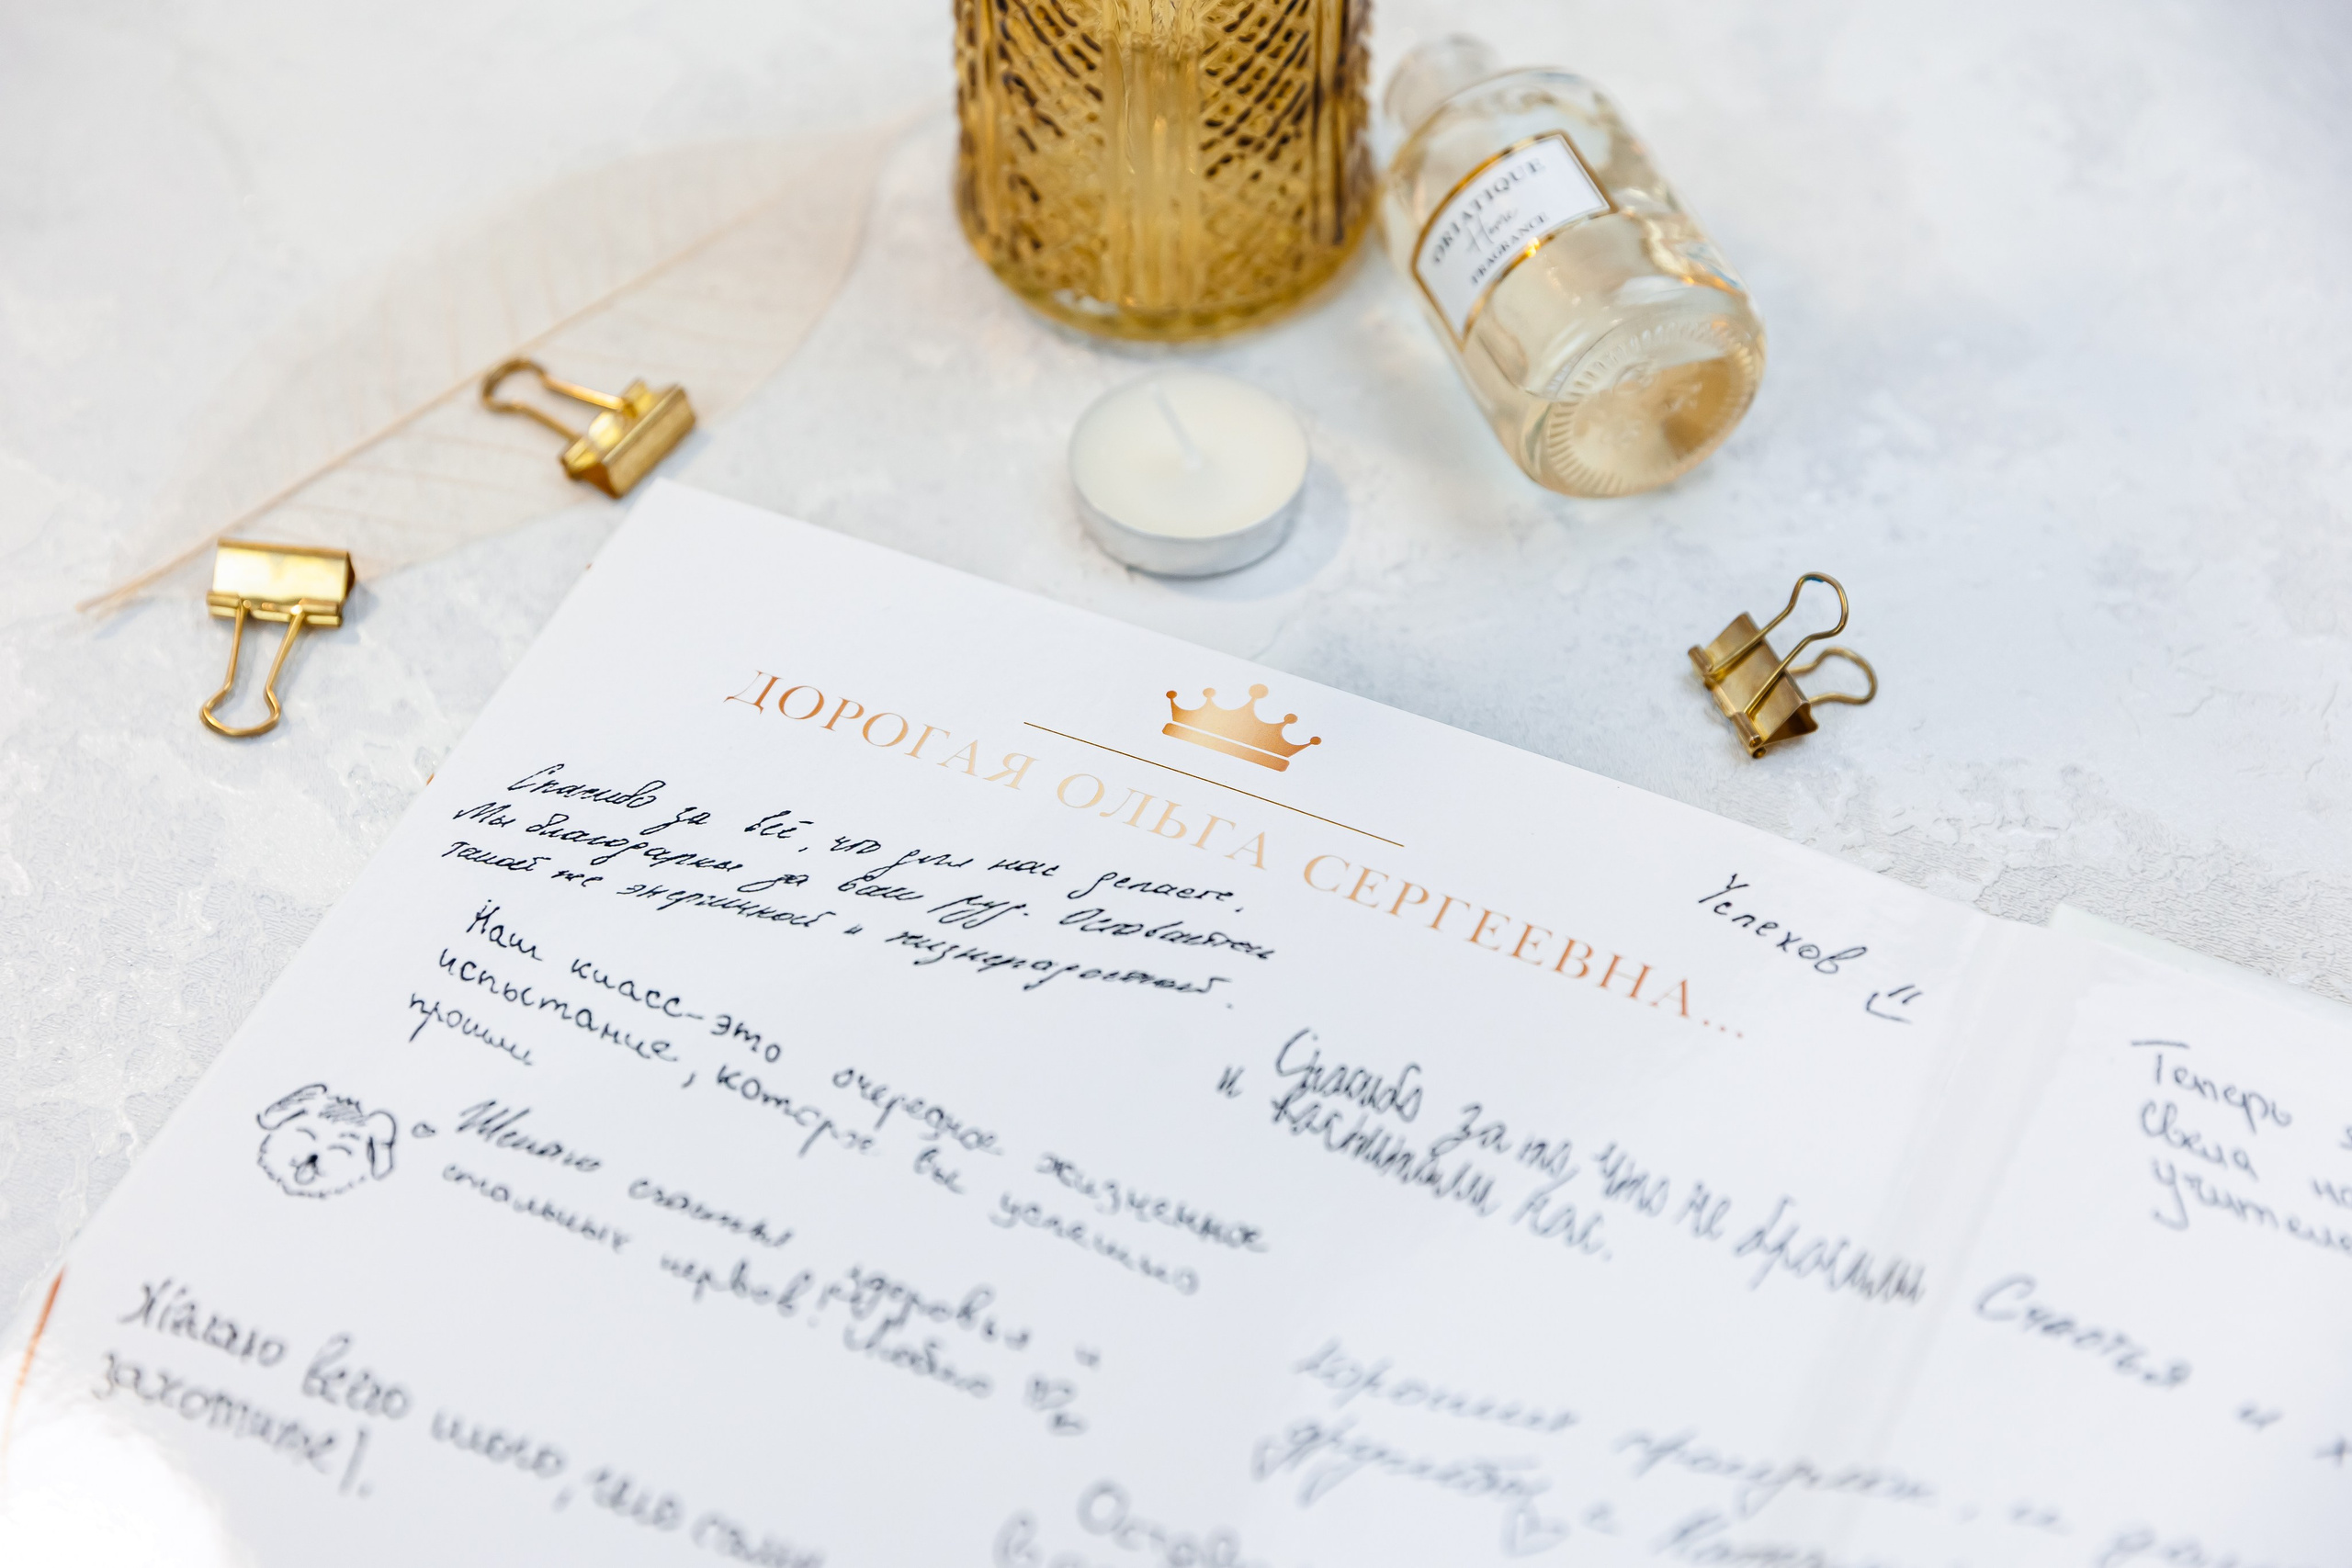 ORIATIQUE
Home
FRAGRANCE
ДОРОГАЯ ОЛЬГА СЕРГЕЕВНА...
Спасибо за всё, что для нас делаете.
Мы благодарны за ваш труд. Оставайтесь
такой же энергичной и жизнерадостной.
Успехов
Наш класс-это очередное жизненное
испытание, которое вы успешно
прошли
Спасибо за то, что не бросили
и воспитали нас.
Желаю счастья здоровья и
стальных нервов! Люблю
Желаю всего того, что сами
захотите!
Теперь
учителе
Счастья и
хороших
дружбы с